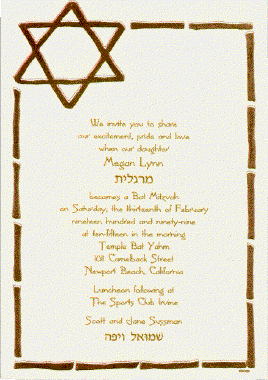 We invite you to share
our excitement, pride and love
when our daughter
Megan Lynn
מרגלית
becomes a Bat Mitzvah
on Saturday, the thirteenth of February
nineteen hundred and ninety-nine
at ten-fifteen in the morning
Temple Bat Yahm
1011 Camelback Street
Newport Beach, California
Luncheon following at
The Sports Club Irvine
Scott and Jane Sussman
שמואל ויפה